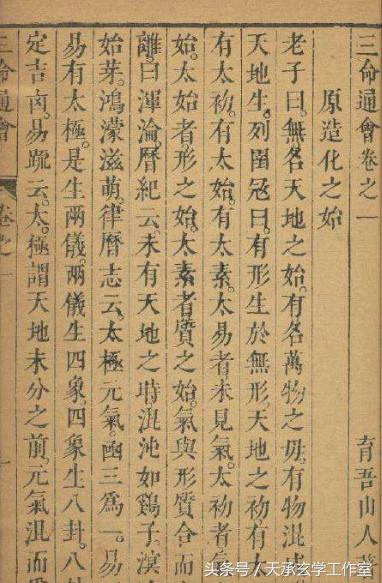 三命通會卷之一　育吾山人著
原造化之始
老子曰。無名天地之始。有名萬物之母。有物混成
天地生。列圄冦曰。有形生於無形。天地之初有太
有太初。有太始。有太素。太易者未見氣。太初者
始。太始者形之始。太素者質之始。氣與形質合而
離。曰渾淪。曆紀云。未有天地之時混沌如鷄子。溟
始芽。鴻濛滋萌。律曆志云。太極元氣函三為一。易
易有太極。是生兩儀。兩儀生四象。四象生八卦。八
定吉凶。易䟽云。太極謂天地未分之前。元氣混而
三命通會　卷之一　一
头条号 / 天承玄学工作室